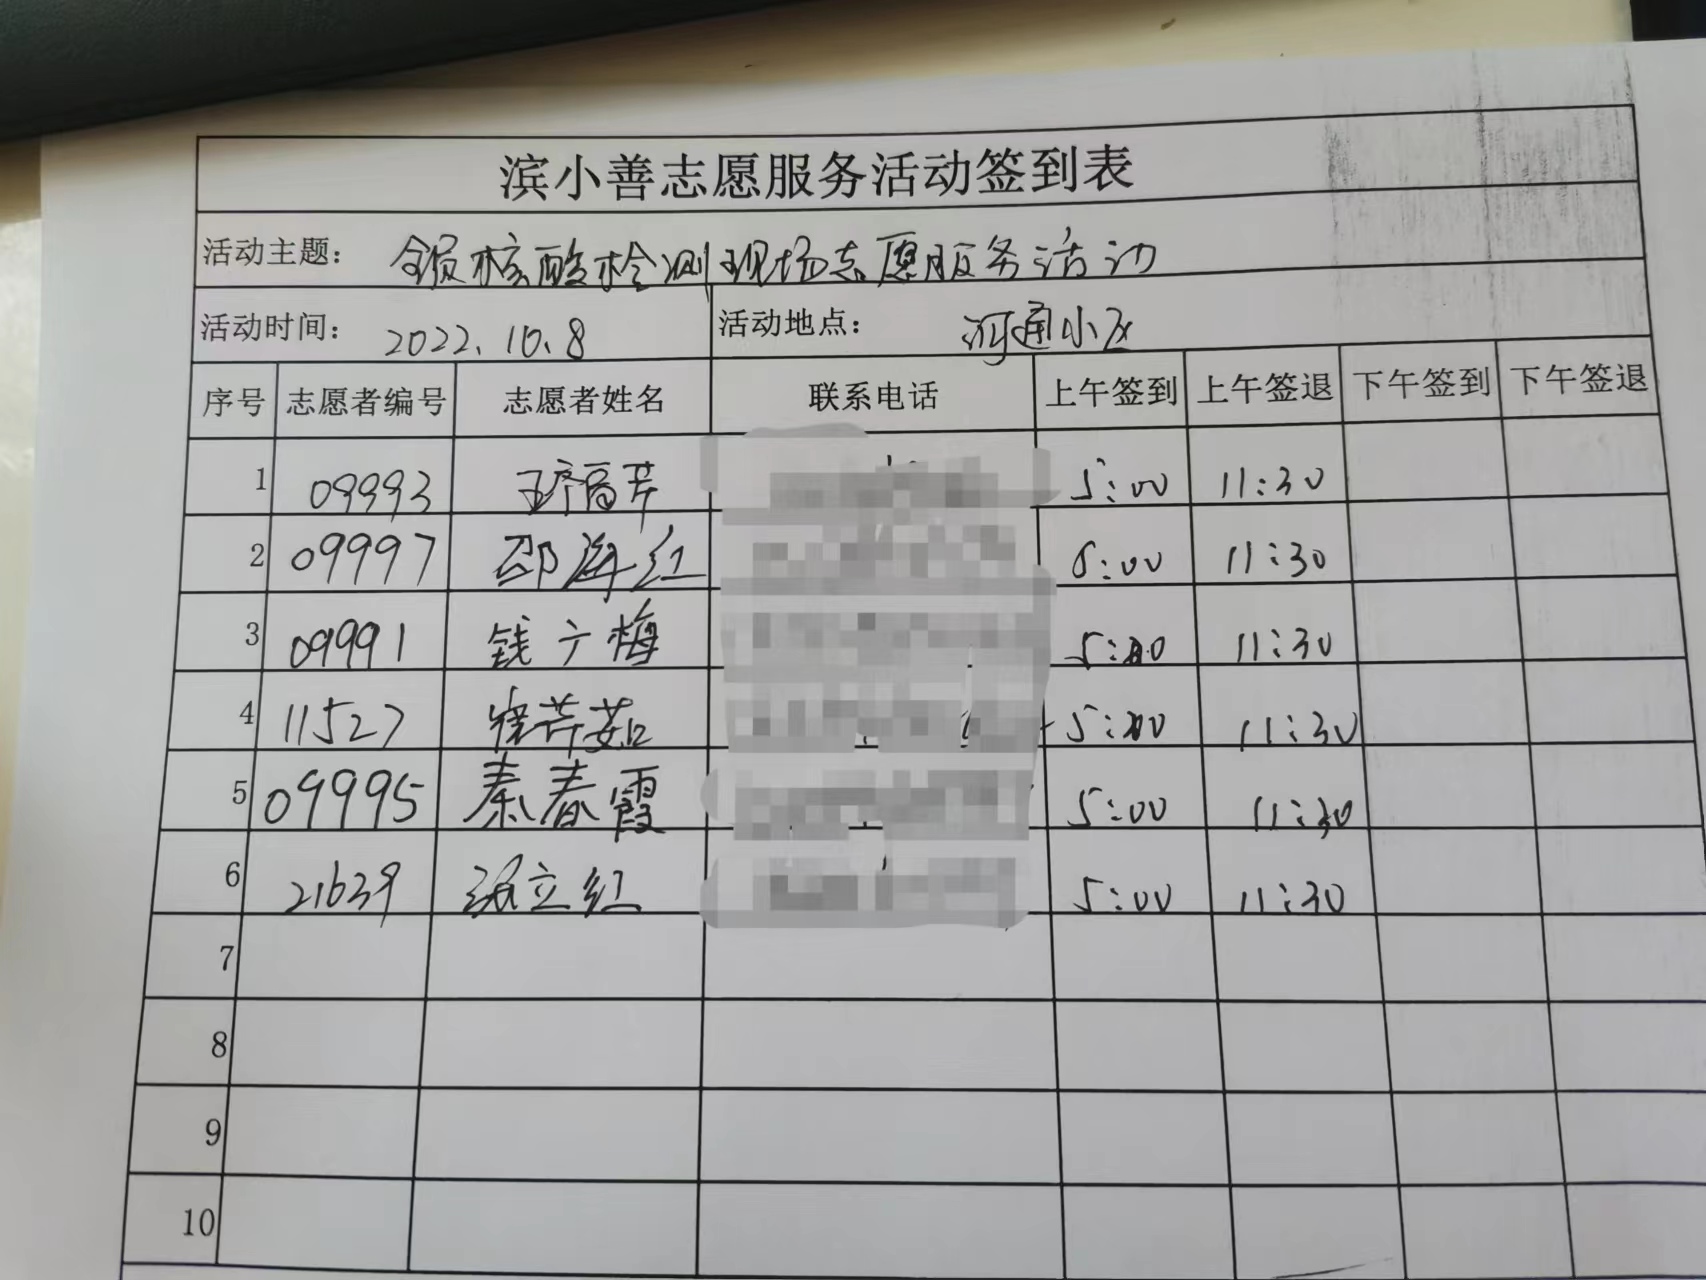 滨小善志愿服务活动签到表
活动主题： 全员核酸检测现场志愿服务活动
活动时间： 2022.10.8 活动地点： 河通小区
序号 志愿者编号 志愿者姓名 联系电话 上午签到 上午签退 下午签到 下午签退
1 09993 5:00 11:30
2 09997 邵海红 11:30
3 09991 钱广梅 5:00 11:30
4 11527 5:00 11:30
5 09995 秦春霞 5:00 11:30
6 21639 立红 5:00 11:30
7
8
9
10